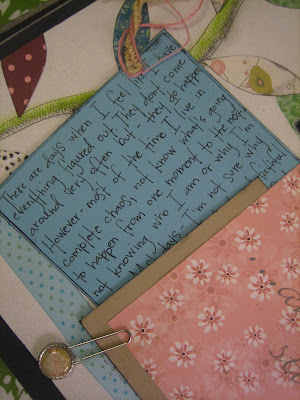 There are days when I feel like I have
everything figured out. They don't come
around very often but they do happen.
However most of the time I live in
complete chaos, not know what's going
to happen from one moment to the next,
not knowing who I am or why I'm
days. I'm not sure why I
faithful